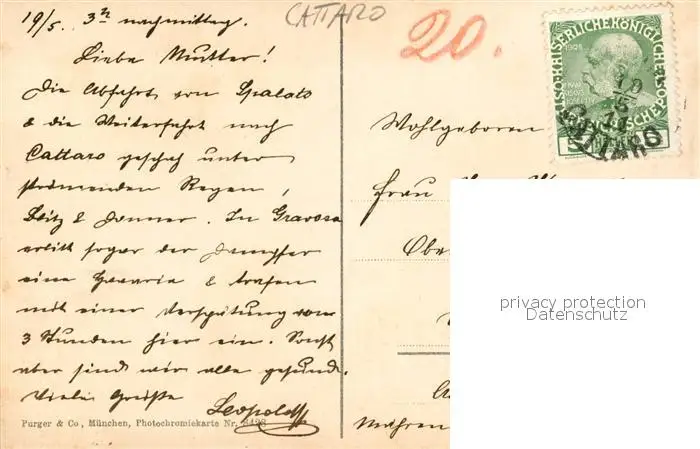 19/5. 3h nachmittag.
CATTARO
20.
Liebe Mutter!
Die Abfahrt von Spalato
& die Weiterfahrt nach
Cattaro geschah unter
strömenden Regen,
Blitz & Donner. In Gravosa
erlitt sogar der Dampfer
eine Havarie & trafen
mit einer Verspätung von
3 Stunden hier ein. Sonst
aber sind wir alle gesund.
Viele Grüße
Leopold
Purger & Co., München, Photochromiekarte Nr. 8428
Wohlgeboren
Frau
Mähren
1908
CATTARO
privacy protection
Datenschutz